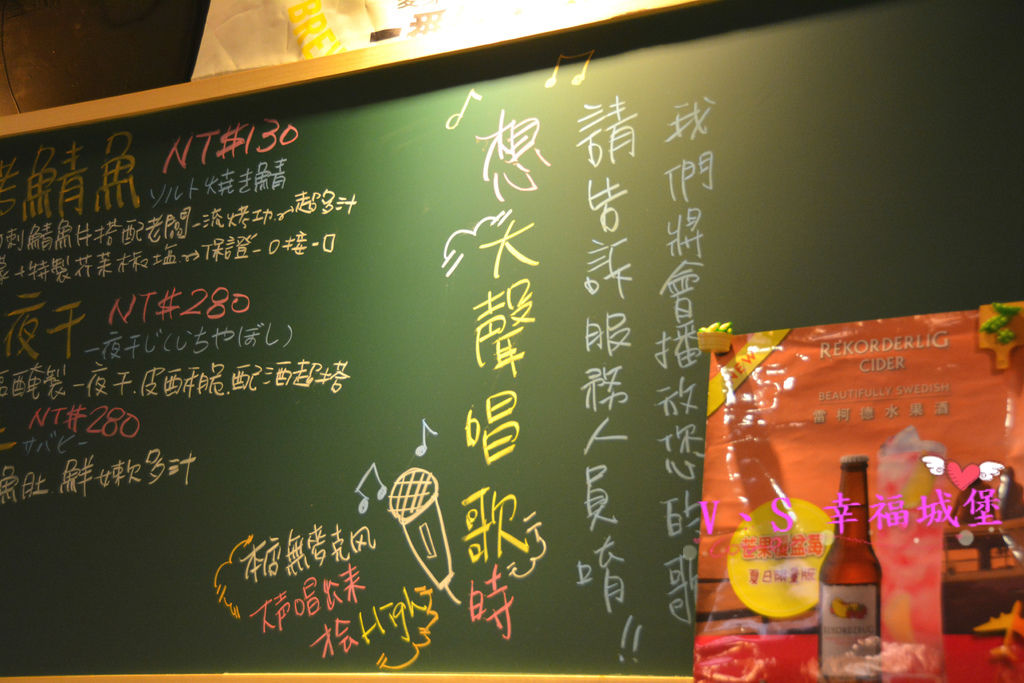 烤鯖魚 NT$130
ソルト焼き鯖
刺鯖魚片搭配老闆一流烤功→超多汁
+特製芥茉椒塩→保證一口接一口
一夜干 NT$280
一夜干じ(いちやぼし)
醃製一夜干.皮酥脆.配酒超搭
NT$280
サバヒー
魚肚.鮮嫩多汁
想大聲唱歌時
請告訴服務人員唷!!
我們將會播放您的歌
本店無麥克风
大声唱出來
才会High
NEW
REKORDERLIG
CIDER
BEAUTIFULLY SWEDISH
雷柯德水果酒
芒果覆盆莓
夏日限量版
REKORDERLIG
V、S 幸福城堡